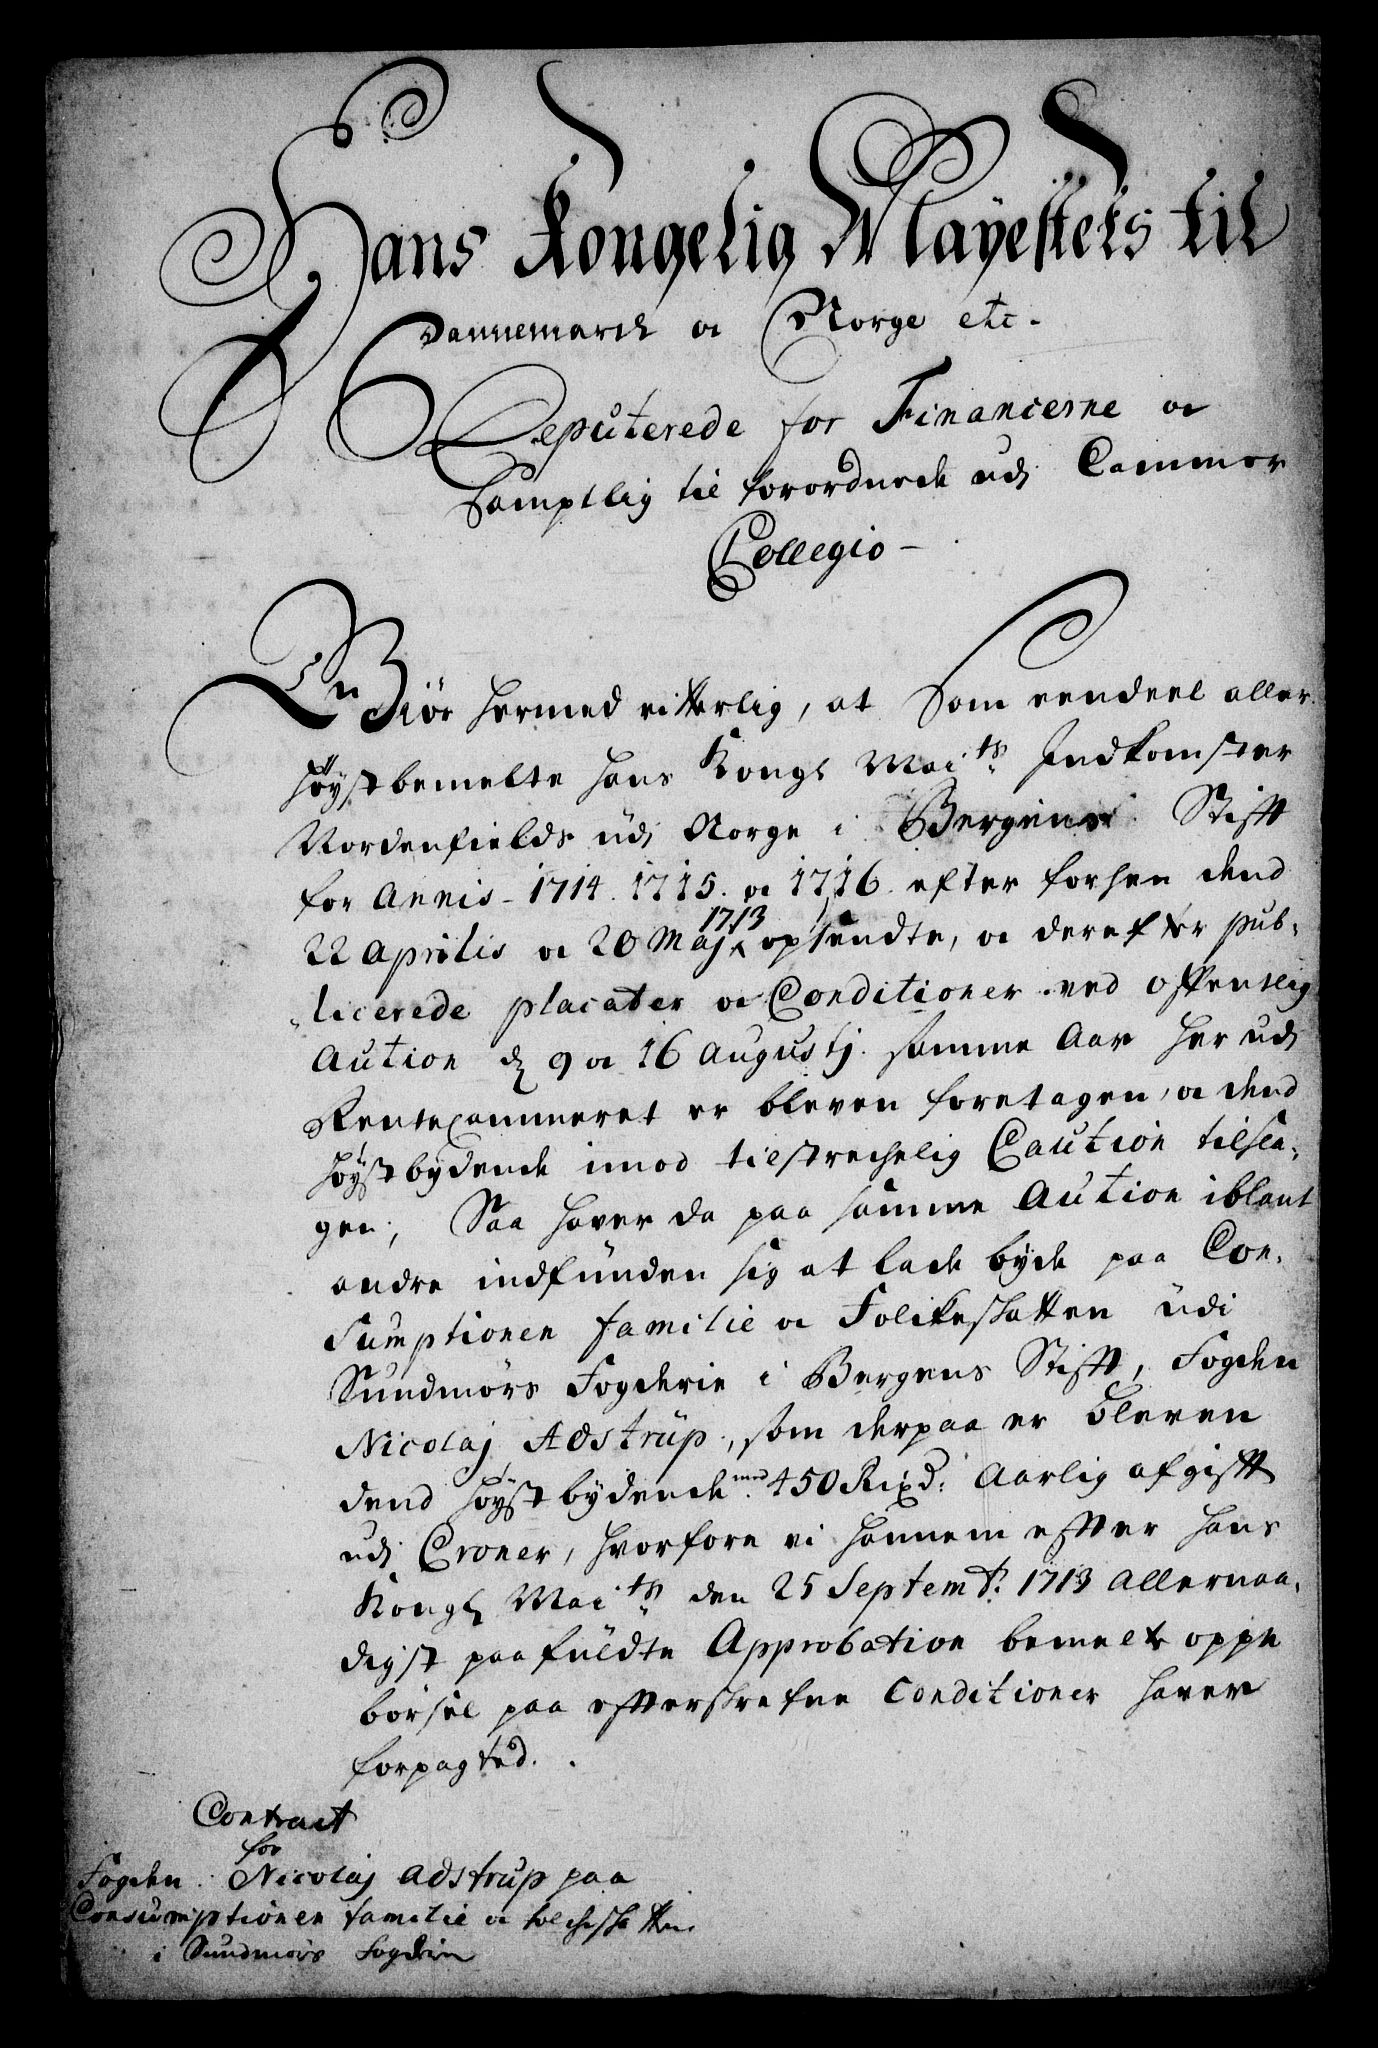 Hans Kongelig Mayestets til
Dannemarck oc Norge etc.
Deputerede for Financerne oc
samptlig til forordnede udj Cammer
Collegio
Giör hermed vitterlig, at Som eendeel aller
höystbemelte hans Kongl Maits Indkomster
Nordenfields udj Norge i Bergens Stifft
for Annis 1714. 1715. oc 1716. efter forhen dend
22 Aprilis oc 20 Maj 1713 opsendte, oc derefter pub-
licerede placater oc Conditioner ved offentlig
Aution d 9 oc 16 Augustj. samme Aar her udj
RenteCammeret er bleven foretagen, oc dend
höystbydende imod tilstrechelig Caution tilsla-
gen; Saa haver da paa samme Aution iblant
andre indfunden sig at lade byde paa Con-
sumptionen familie oc Folckeskatten udi
Sundmörs Fogderie i Bergens Stifft, Fogden
Nicolaj Astrup, som derpaa er bleven
dend höystbydende med 450 Rixd: Aarlig afgifft
udj Croner, hvorfore vi hannem effter hans
Kongl Maits den 25 Septembr: 1713 allernaa-
digst paafuldte Approbation bemelte oppe
börsel paa effterskrefne Conditioner haver
forpagted.
Contract
for
Fogden Nicolaj Adstrup paa
Consumptionen familie oc folcheskatten
i Sundmörs Fogderie